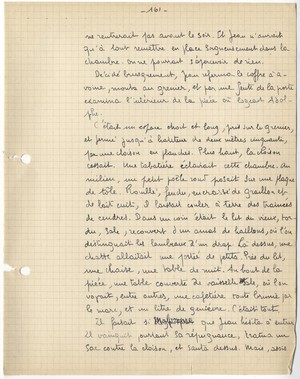 - 161 -
ne rentrerait pas avant le soir. Et Jean n'aurait
qu'à tout remettre en place soigneusement dans la
chambre. On ne pourrait s'apercevoir de rien.
Décidé brusquement, Jean referma le coffre à a-
voine, monta au grenier, et par une fente de la porte
examina l'intérieur de la pièce où logeait Adol-
phe.
C'était un espace étroit et long, pris sur le grenier,
et fermé jusqu'à hauteur de deux mètres cinquante,
par une cloison en planches. Plus haut, la cloison
cessait. Une tabatière éclairait cette chambre. Au
milieu, un petit poêle rond posait sur une plaque
de tôle. Rouillé, fendu, encrassé de graillon et
de lait cuit, il laissait couler à terre des traînées
de cendres. Dans un coin était le lit du vieux, tor-
du, sale, recouvert d'un amas de haillons, où l'on
distinguait les lambeaux d'un drap. Là dessus, une
chatte allaitait une portée de petits. Près du lit,
une chaise, une table de nuit. Au bout de la
pièce, une table couverte de vaisselle sale, où l'on
voyait, entre autres, une cafetière toute brunie par
le marc, et un litre de genièvre. C'était tout.
Il faisait si que Jean hésita à entrer.
Il vainquit pourtant sa répugnance, traîna un
sac contre la cloison, et sauta dessus. Mais, assis